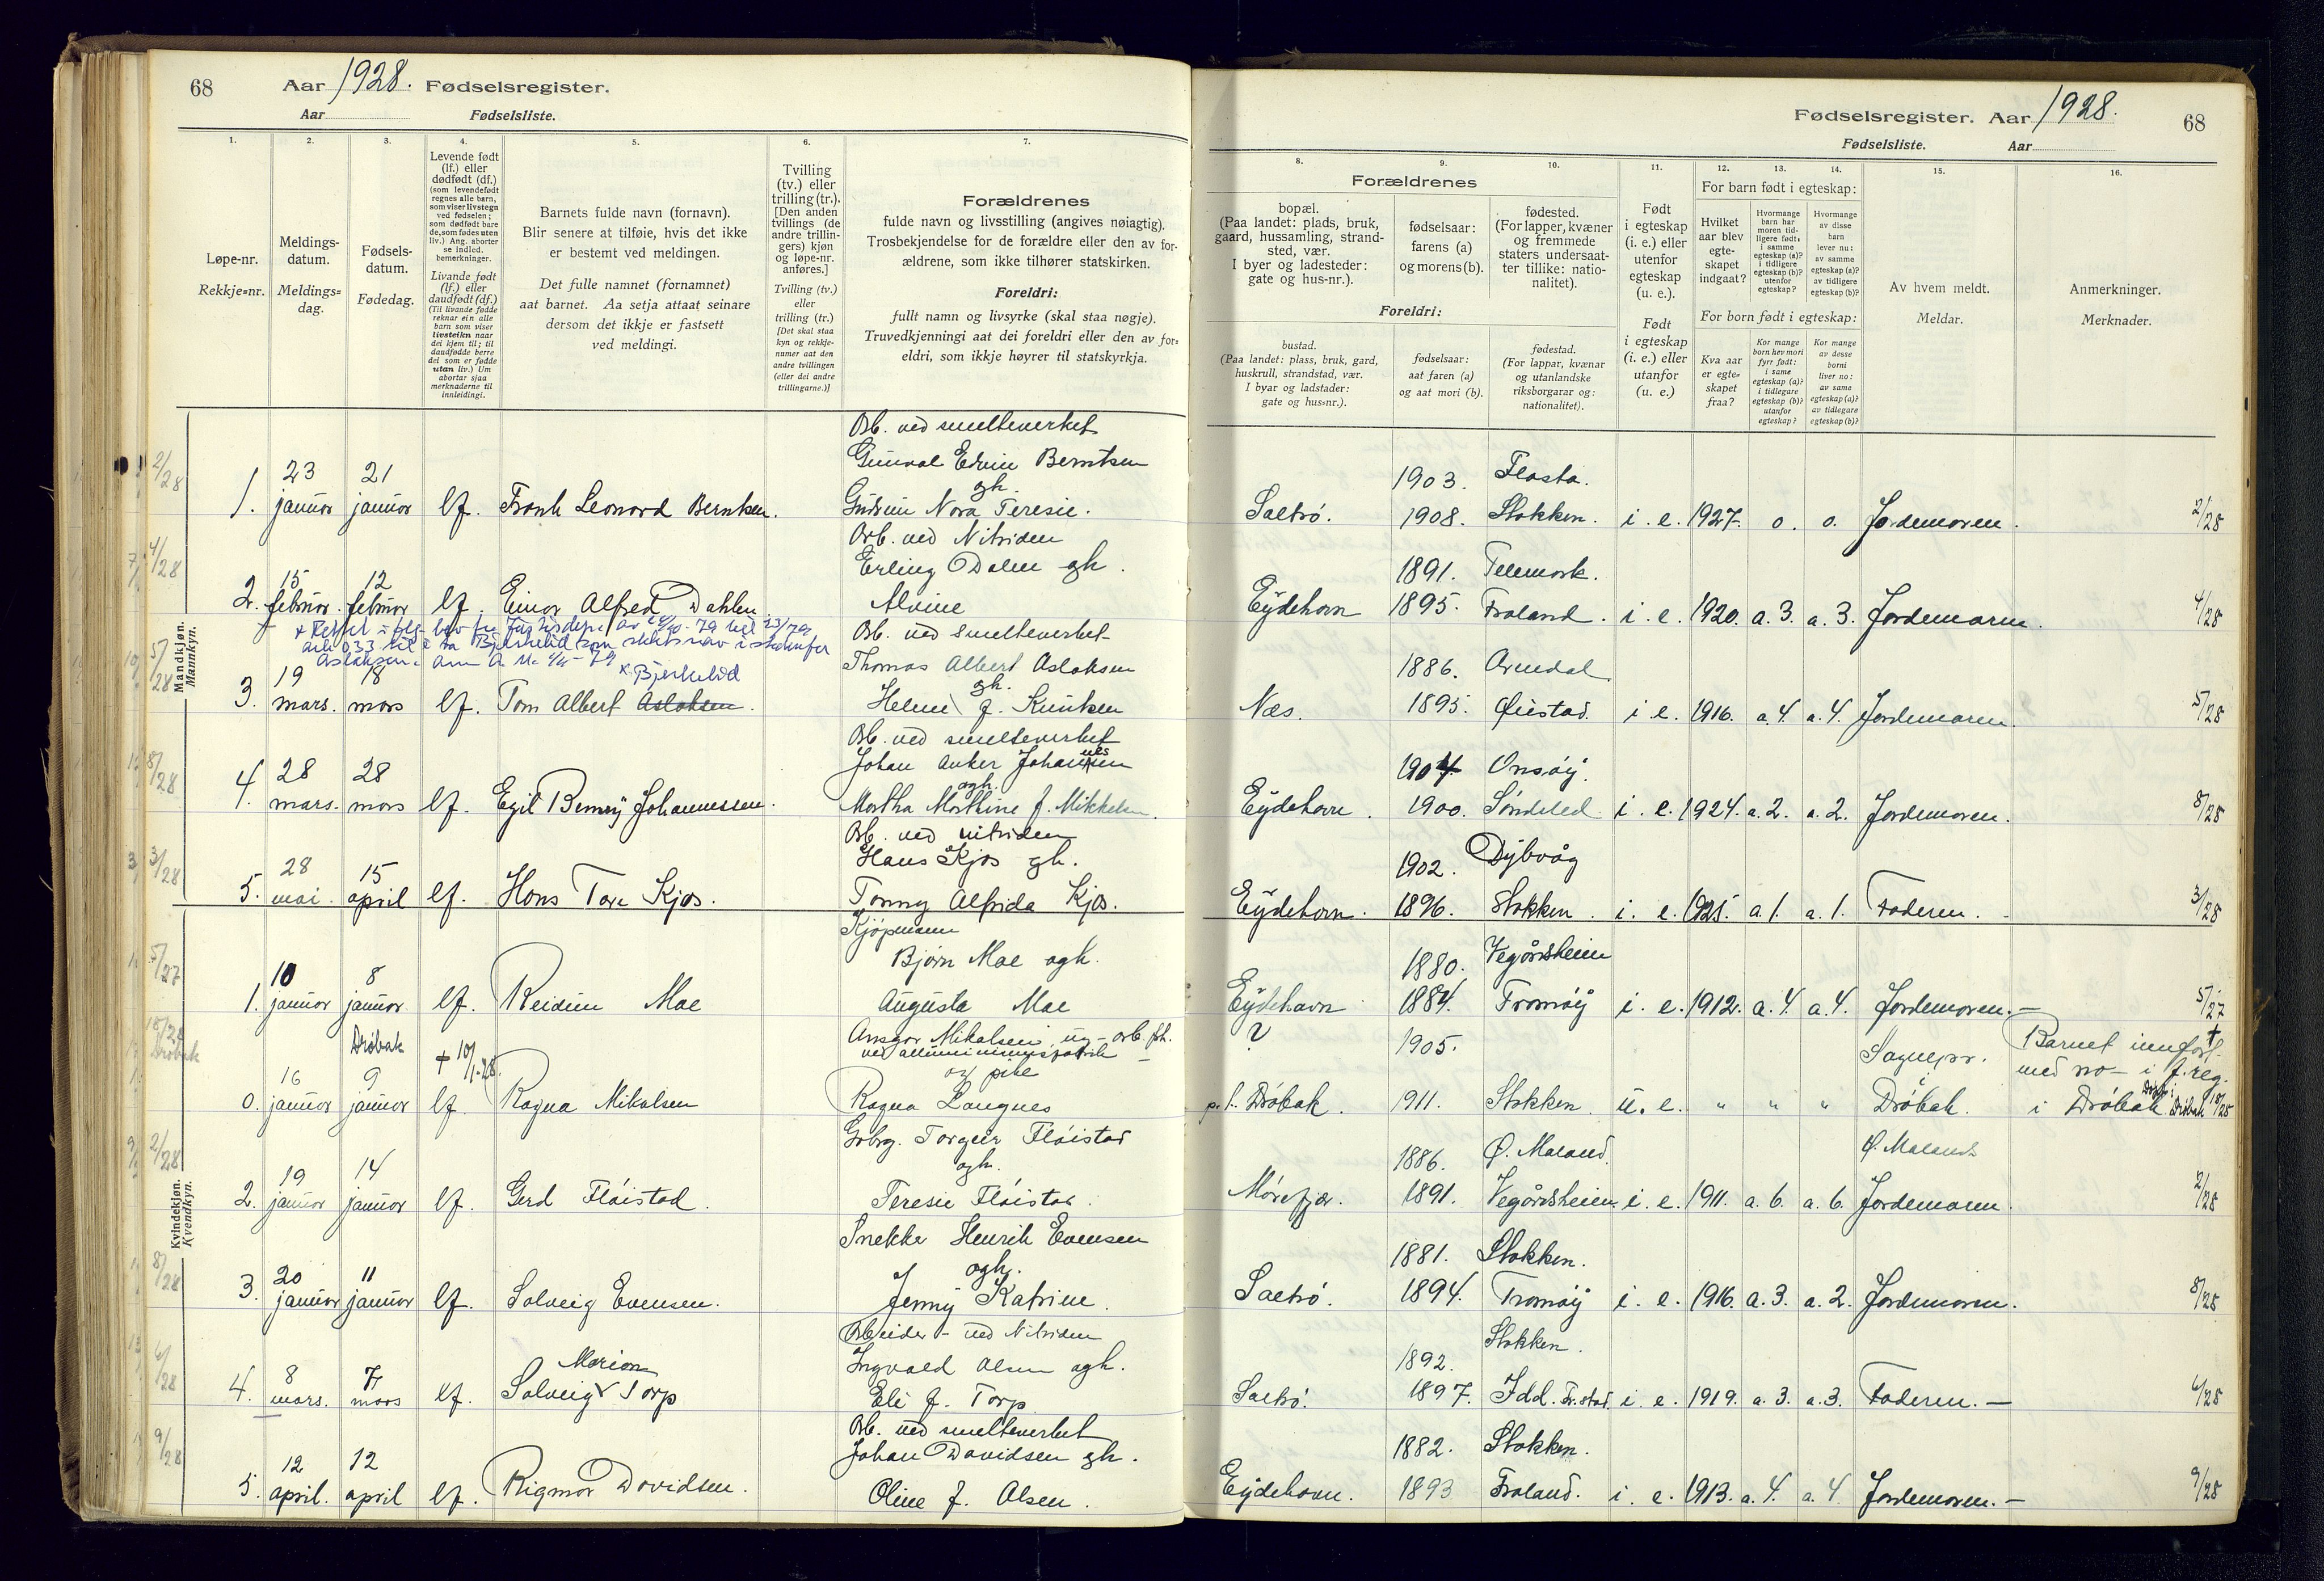 68 Aar 1928. Fødselsregister.
Aar Fødselsliste.
1. 2. 3. 4. 5. 6. 7.
Løpe-nr.
Rekkje-nr.
Meldings-
datum.
Meldings-
dag.
Fødsels-
datum.
Fødedag.
Levende født
(lf.) eller
dødfødt (df.)
(som levendefødt
regnes alle barn,
som viser livstegn
ved fødselen;
som dødfødt bare
de, som fødes uten
liv.) Ang. aborter
se indled.
bemerkninger.
Livande født
(lf.) eller
daudfødt (df.)
(Til livande fødde
reknar ein alle
barn som viser
livsteikn naar
dei kjem til; til
daudfødde berre
dei som er fødde
utan liv.) Um
abortar sjaa
merknaderne til
innleidingi.
Barnets fulde navn (fornavn).
Blir senere at tilføie, hvis det ikke
er bestemt ved meldingen.
Det fulle namnet (fornamnet)
aat barnet. Aa setja attaat seinare
dersom det ikkje er fastsett
ved meldingi.
Tvilling
(tv.) eller
trilling (tr.).
[Den anden
tvillings (de
andre trillin-
gers) kjøn
og løpe-nr.
anføres.]
Tvilling (tv.)
eller
trilling (tr.)
[Det skal staa
kyn og rekkje-
numer aat den
andre tvillingen
(eller dei andre
trillingarne.)]
Forældrenes
fulde navn og livsstilling (angives nøiagtig).
Trosbekjendelse for de forældre eller den av for-
ældrene, som ikke tilhører statskirken.
Foreldri:
fullt namn og livsyrke (skal staa nøgje).
Truvedkjenningi aat dei foreldri eller den av for-
eldri, som ikkje høyrer til statskyrkja.
Mandkjøn.
Mannkyn.
Arb. ved smelteverket
Gunval Edvin Berntsen
gh.
1. 23 januar 21 januar lf. Frank Leonard Berntsen. Gudrun Nora Teresie.
Arb. ved Nitriden
Erling Dalen gh.
2. 15 februar. 12 februar lf. Einar Alfred Dahlen. Alvine
Arb. ved smelteverket
Thomas Albert Aslaksen
gh.
x Bjerkelid
3. 19 mars. 18 mars lf. Tom Albert Aslaksen. Helene f. Knutsen
Arb. ved smelteverket
Johan Anker Johannesen
ogh.
4. 28 mars. 28 mars lf. Egil Benny Johannessen. Martha Mathine f. Mikkelsen.
Arb. ved nitriden
Hans Kjøs gh.
5. 28 mai. 15 april lf. Hans Tore Kjøs. Tonny Alfrida Kjøs.
Kvindekjøn.
Kvendkyn.
Kjøpmann
Bjørn Moe ogh.
1. 10 januar 8 januar lf. Reidun Moe Augusta Moe
Drøbak
Ansgar Mikalsen, ug-arb.
ved alluminiumsfabrik
og pike
0. 16 januar 9 januar lf. Ragna Mikalsen Ragna Langnes
Grbrg. Torgeir Fløistad
ogh.
2. 19 januar 14 januar lf. Gerd Fløistad. Teresie Fløistad.
Snekker Henrik Evensen
ogh.
3. 20 januar 11 januar lf. Solveig Evensen. Jenny Katrine.
Arbeider - ved Nitriden
Ingvald Olsen ogh.
4. 8 mars. 7 mars lf. Solveig Marion Torp Eli f. Torp
Arb. ved smelteverket
Johan Davidsen gh.
5. 12 april. 12 april lf. Rigmor Davidsen. Oline f. Olsen.
Fødselsregister. Aar 1928. 68
Fødselsliste. Aar
8. 9. 10. 11. 12. 13. 14. 15. 16.
Forældrenes
bopæl.
(Paa landet: plads, bruk,
gaard, hussamling, strand-
sted, vær.
I byer og ladesteder:
gate og hus-nr.).
fødselsaar:
farens (a)
og morens (b).
fødested.
(For lapper, kvæner
og fremmede
staters undersaat-
ter tillike: natio-
nalitet).
Foreldri:
bustad.
(Paa landet: plass, bruk, gard,
huskrull, strandstad, vær.
I byar og ladstader:
gate og hus-nr.).
fødselsaar:
aat faren (a)
og aat mori (b).
fødestad.
(For lappar, kvænar
og utanlandske
riksborgarar og:
nationalitet).
Født
i egteskap
(i. e.) eller
utenfor
egteskap
(u. e.).
Født
i egteskap
(i. e.) eller
utanfor
(u. e.)
For barn født i egteskap:
Hvilket
aar blev
egte-
skapet
indgaat?
Hvormange
barn har
moren tid-
ligere født:
i samme
egteskap (a)?
i tidligere
egteskap (b)?
utenfor
egteskap?
Hvormange
av disse
barn
lever nu:
av samme
egteskap (a)?
av tidligere
egteskap (b)?
For born født i egteskap:
Kva aar
er egte-
skapet
fraa?
Kor mange
born hev mori
fyrr født:
i same
egteskap (a)?
i tidlegare
egteskap (b)?
utanfor
egteskap?
Kor mange
av desse
borni
liver no:
av same
egteskap (a)?
av tidlegare
egteskap (b)?
Av hvem meldt.
Meldar.
Anmerkninger.
Merknader.
1903. Flosta.
Saltrø. 1908. Stokken. i. e. 1927. 0. 0. Jordemoren. 2/28
1891. Telemark.
Eydehavn 1895. Froland. i. e. 1920. a. 3. a. 3. Jordemoren. 4/28
1886. Arendal
Næs. 1895. Øiestad. i. e. 1916. a. 4. a. 4. Jordemoren. 5/28
1904. Onsøy.
Eydehavn. 1900. Søndeled i. e. 1924. a. 2. a. 2. Jordemoren. 8/28
1902. Dybvåg
Eydehavn. 1896. Stokken. i. e. 1925. a. 1. a. 1. Faderen. 3/28
1880. Vegårdsheien
Eydehavn 1884. Tromøy i. e. 1912. a. 4. a. 4. Jordemoren. — 5/27
? 1905. Sognepr. Barnet innført
med no — i f. reg.
p. t. Drøbak. 1911. Stokken. u. e. " " " Drøbak. i Drøbak
1886. Ø. Moland. Ø. Moland
Mørefjær. 1891. Vegårdsheien. i. e. 1911. a. 6. a. 6. Jordemoren. 2/28
1881. Stokken.
Saltrø. 1894. Tromøy i. e. 1916. a. 3. a. 2. Jordemoren. 8/28
1892. Stokken.
Saltrø. 1897. Idd. Fr.stad. i. e. 1919. a. 3. a. 3. Faderen. — 6/28
1882. Stokken.
Eydehavn. 1893 Froland. i. e. 1913. a. 4. a. 4 Jordemoren. — 9/28